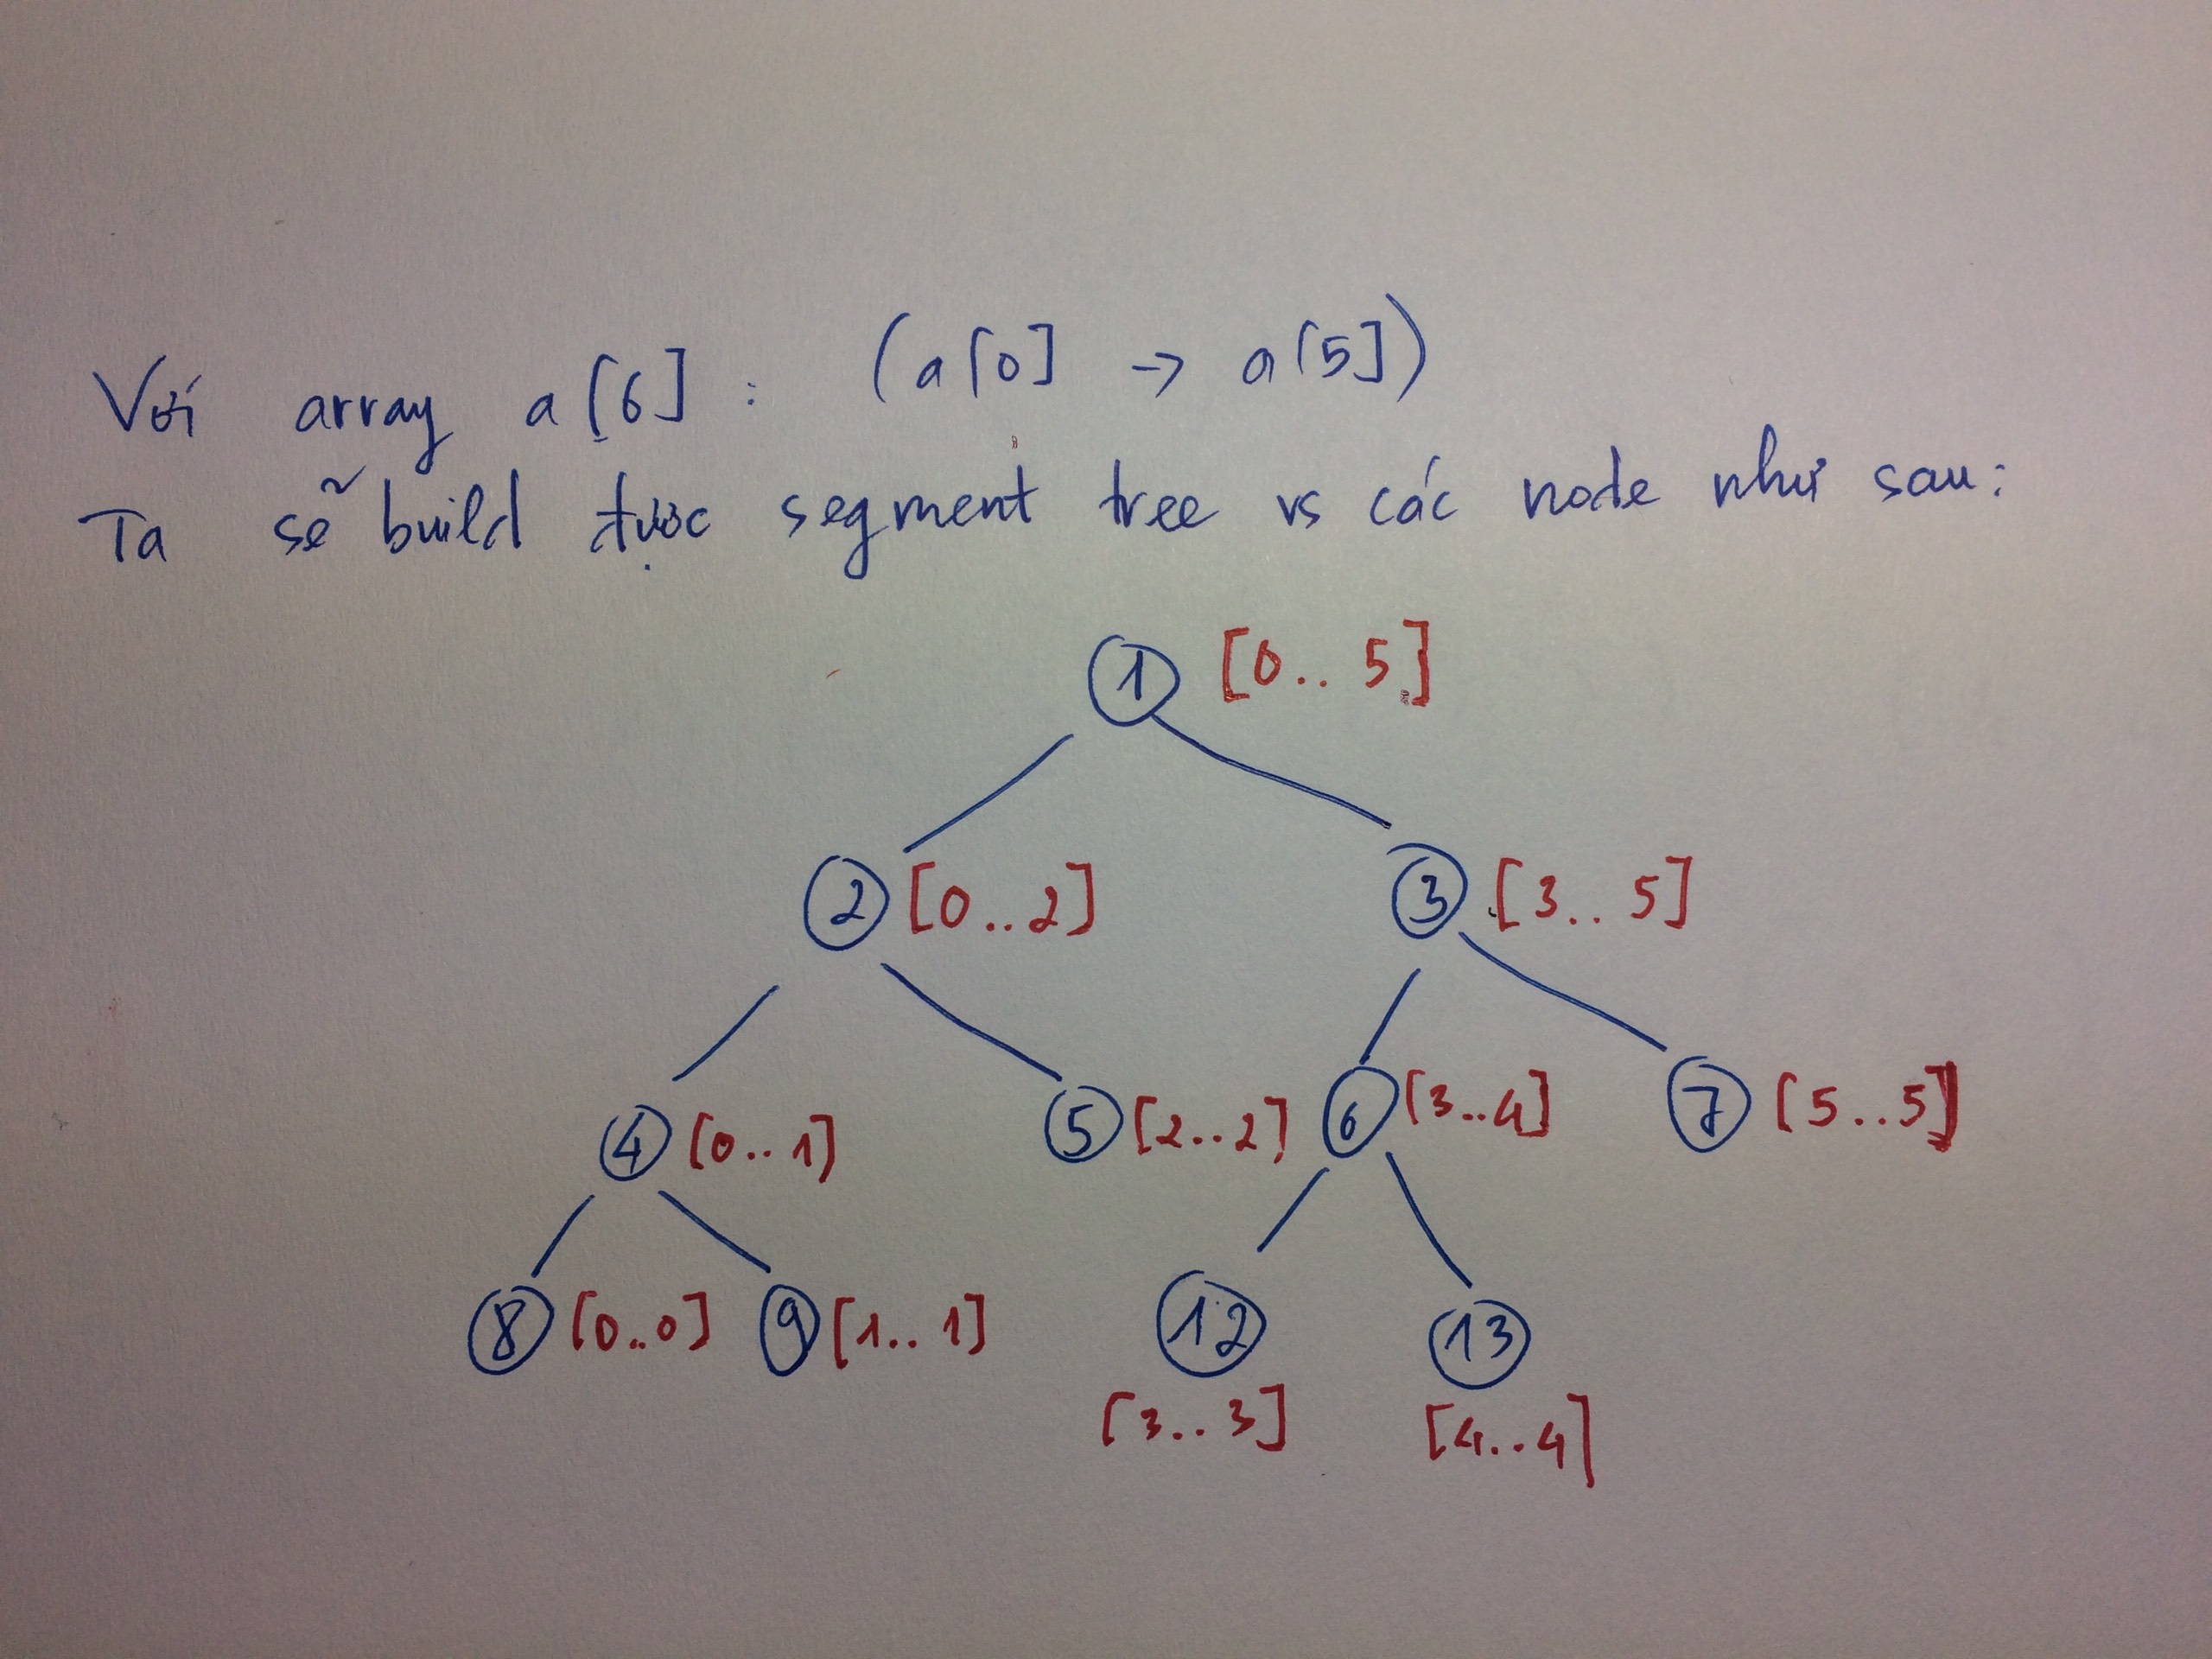 Với array a[6] : (a[0] → a[5])
Ta sẽ build được segment tree vs các node như sau:
1 [0.. 5]
2 [0..2] 3 [3.. 5]
4 [0..1] 5 [2..2] 6 [3..4] 7 [5..5]
8 [0..0] 9 [1..1] 12 13
[3..3] [4..4]